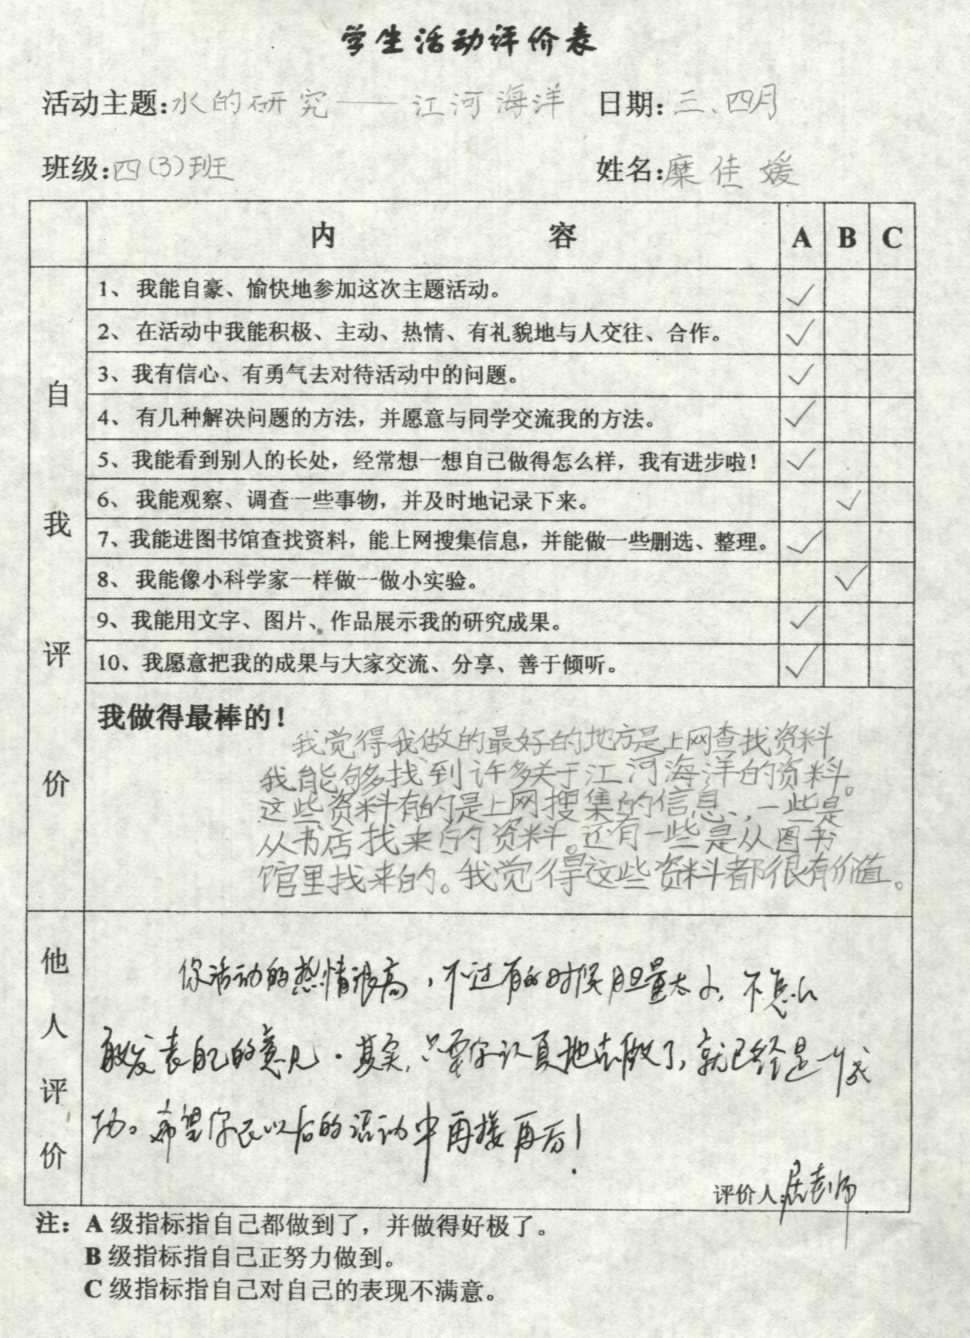 学生活动评价表
活动主题:水的研究——江河海洋 日期:三、四月
班级:四(3)班 姓名:糜佳媛
内 容 A B C
自我评价
1、我能自豪、愉快地参加这次主题活动。 ✓
2、在活动中我能积极、主动、热情、有礼貌地与人交往、合作。 ✓
3、我有信心、有勇气去对待活动中的问题。 ✓
4、有几种解决问题的方法，并愿意与同学交流我的方法。 ✓
5、我能看到别人的长处，经常想一想自己做得怎么样，我有进步啦！ ✓
6、我能观察、调查一些事物，并及时地记录下来。 ✓
7、我能进图书馆查找资料，能上网搜集信息，并能做一些删选、整理。 ✓
8、我能像小科学家一样做一做小实验。 ✓
9、我能用文字、图片、作品展示我的研究成果。 ✓
10、我愿意把我的成果与大家交流、分享、善于倾听。 ✓
我做得最棒的！
我觉得我做的最好的地方是上网查找资料
我能够找到许多关于江河海洋的资料。
这些资料有的是上网搜集的信息，一些是
从书店找来的资料。还有一些是从图书
馆里找来的。我觉得这些资料都很有价值。
他人评价
你活动的热情很高，不过有的时候胆量太小，不怎么
敢发表自己的意见。其实，只要你认真地去做了，就已经是一个成
功。希望你在以后的活动中再接再厉！
评价人:居老师
注：A 级指标指自己都做到了，并做得好极了。
B 级指标指自己正努力做到。
C 级指标指自己对自己的表现不满意。